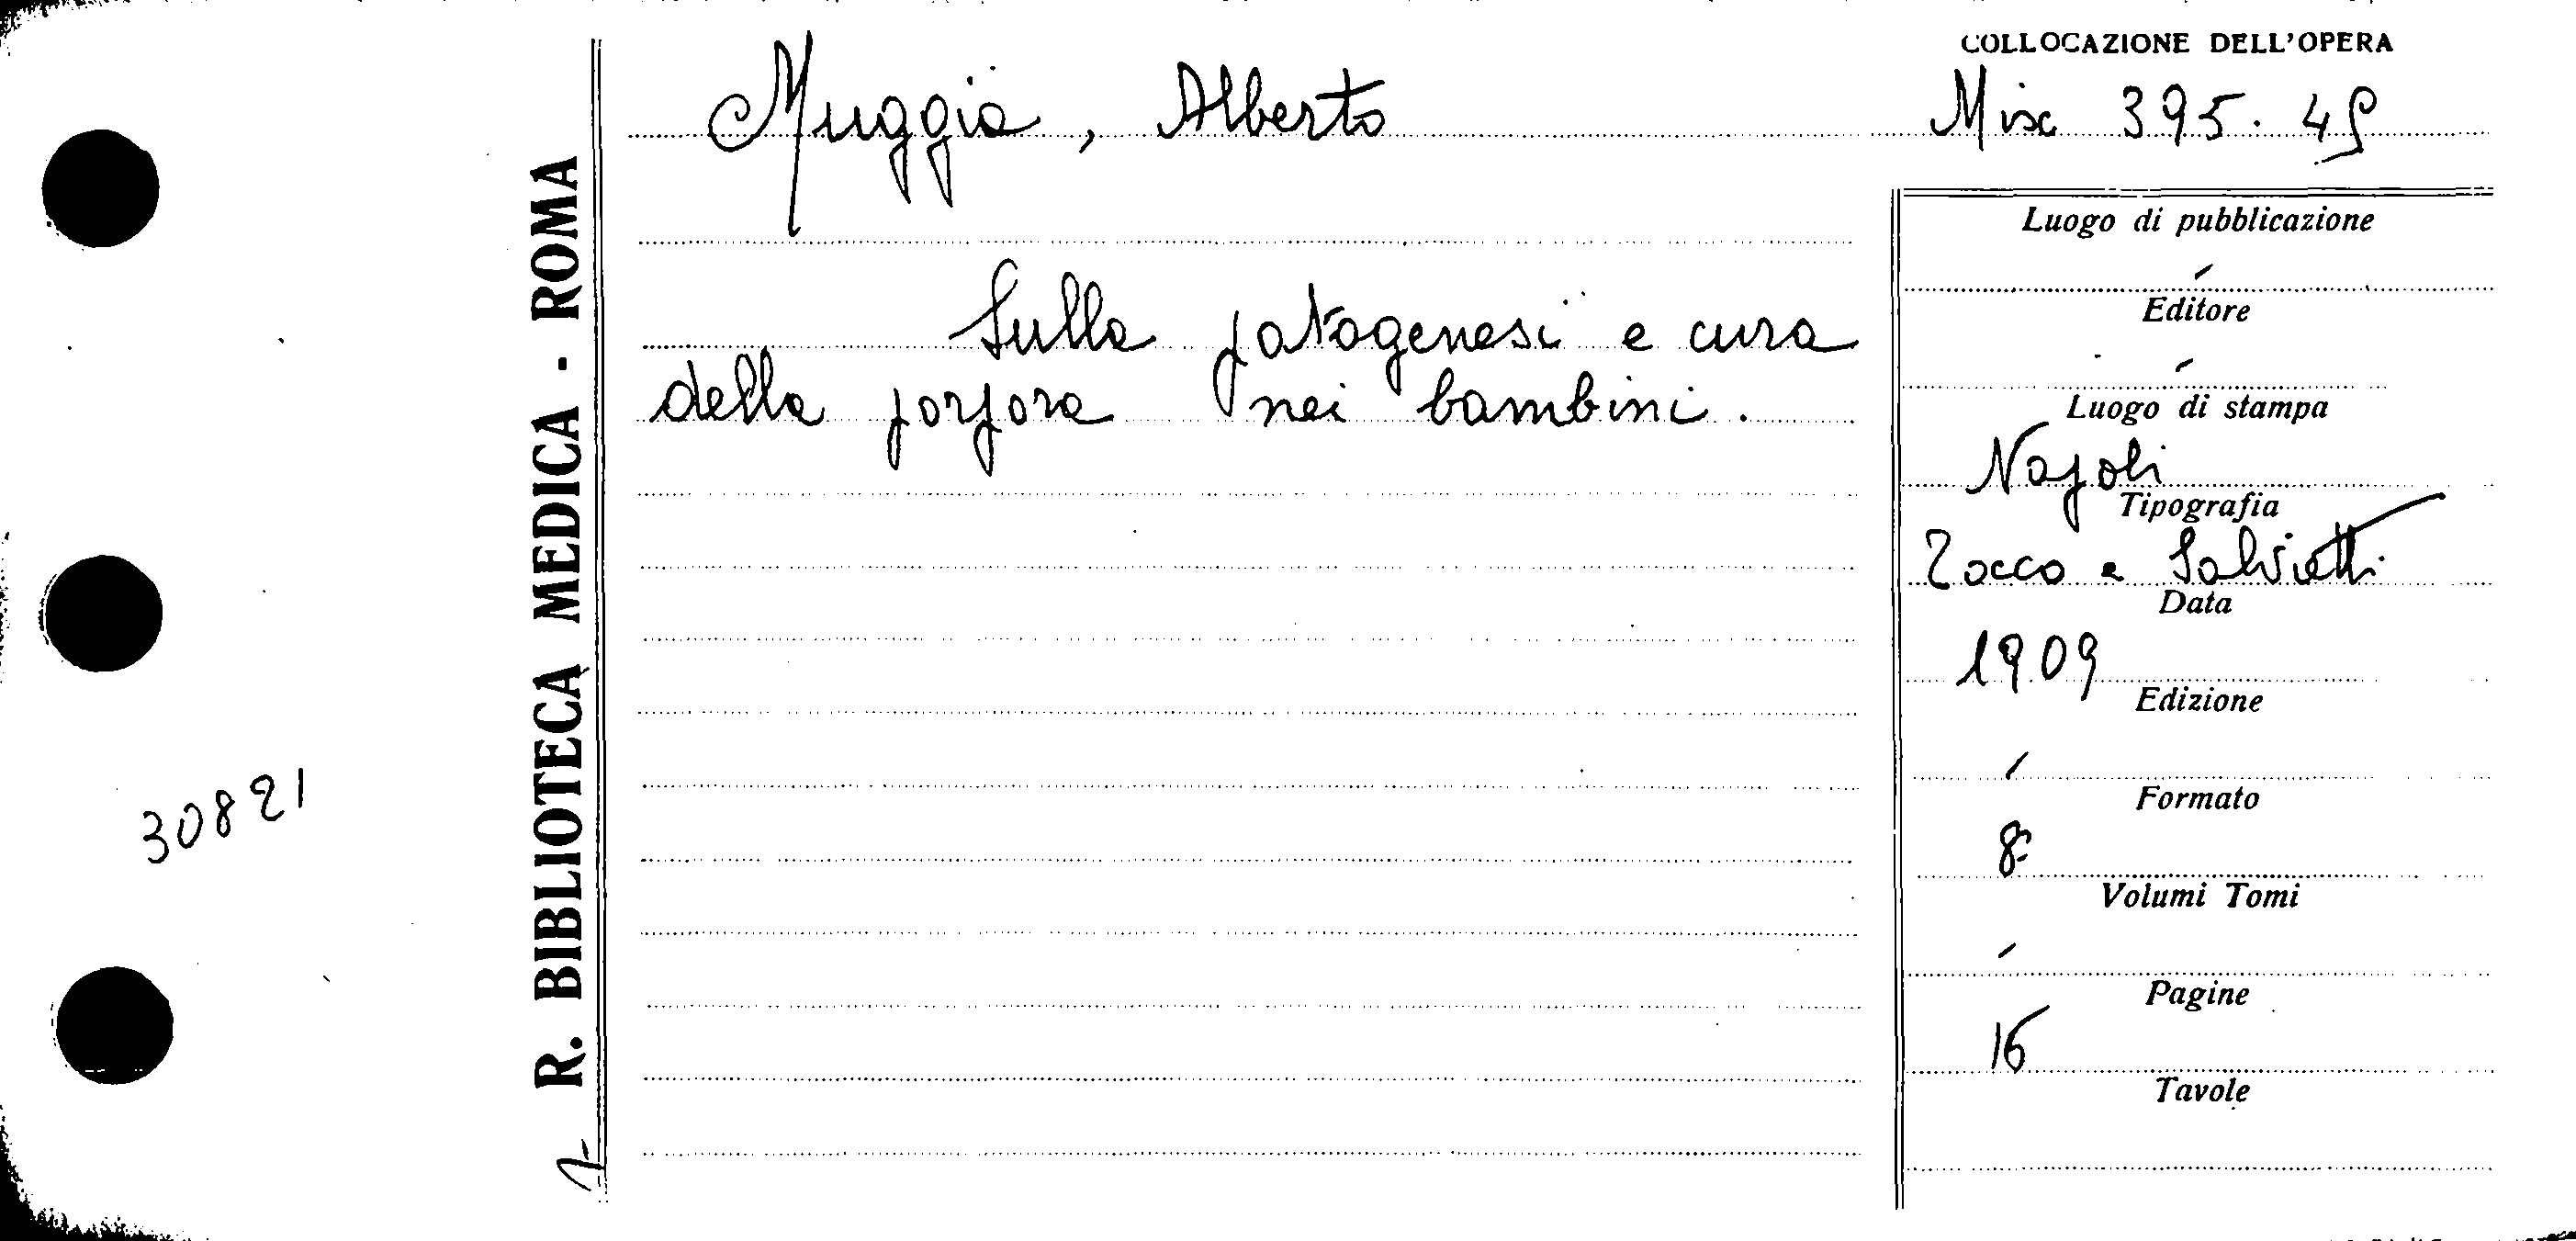 COLLOCAZIONE DELL'OPERA
Muggia, Alberto
Misc 395. 45
R. BIBLIOTECA MEDICA - ROMA
Sulla patogenesi e cura
della porpora nei bambini.
Luogo di pubblicazione
-
Editore
-
Luogo di stampa
Napoli
Tipografia
Tocco e Salvietti
Data
1909
Edizione
-
Formato
8°
Volumi Tomi
-
Pagine
16
Tavole
30821